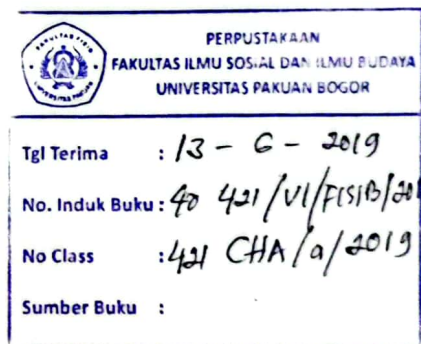 PERPUSTAKAAN
FAKULTAS ILMU SOSIAL DAN ILMU BUDAYA
UNIVERSITAS PAKUAN BOGOR
Tgl Terima : 13 - 6 - 2019
No. Induk Buku : 40 421/VI/FISIB/201
No Class : 421 CHA/a/2019
Sumber Buku :